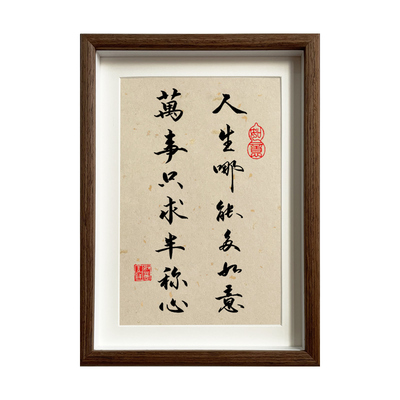 人生哪能多如意
萬事只求半称心
如意